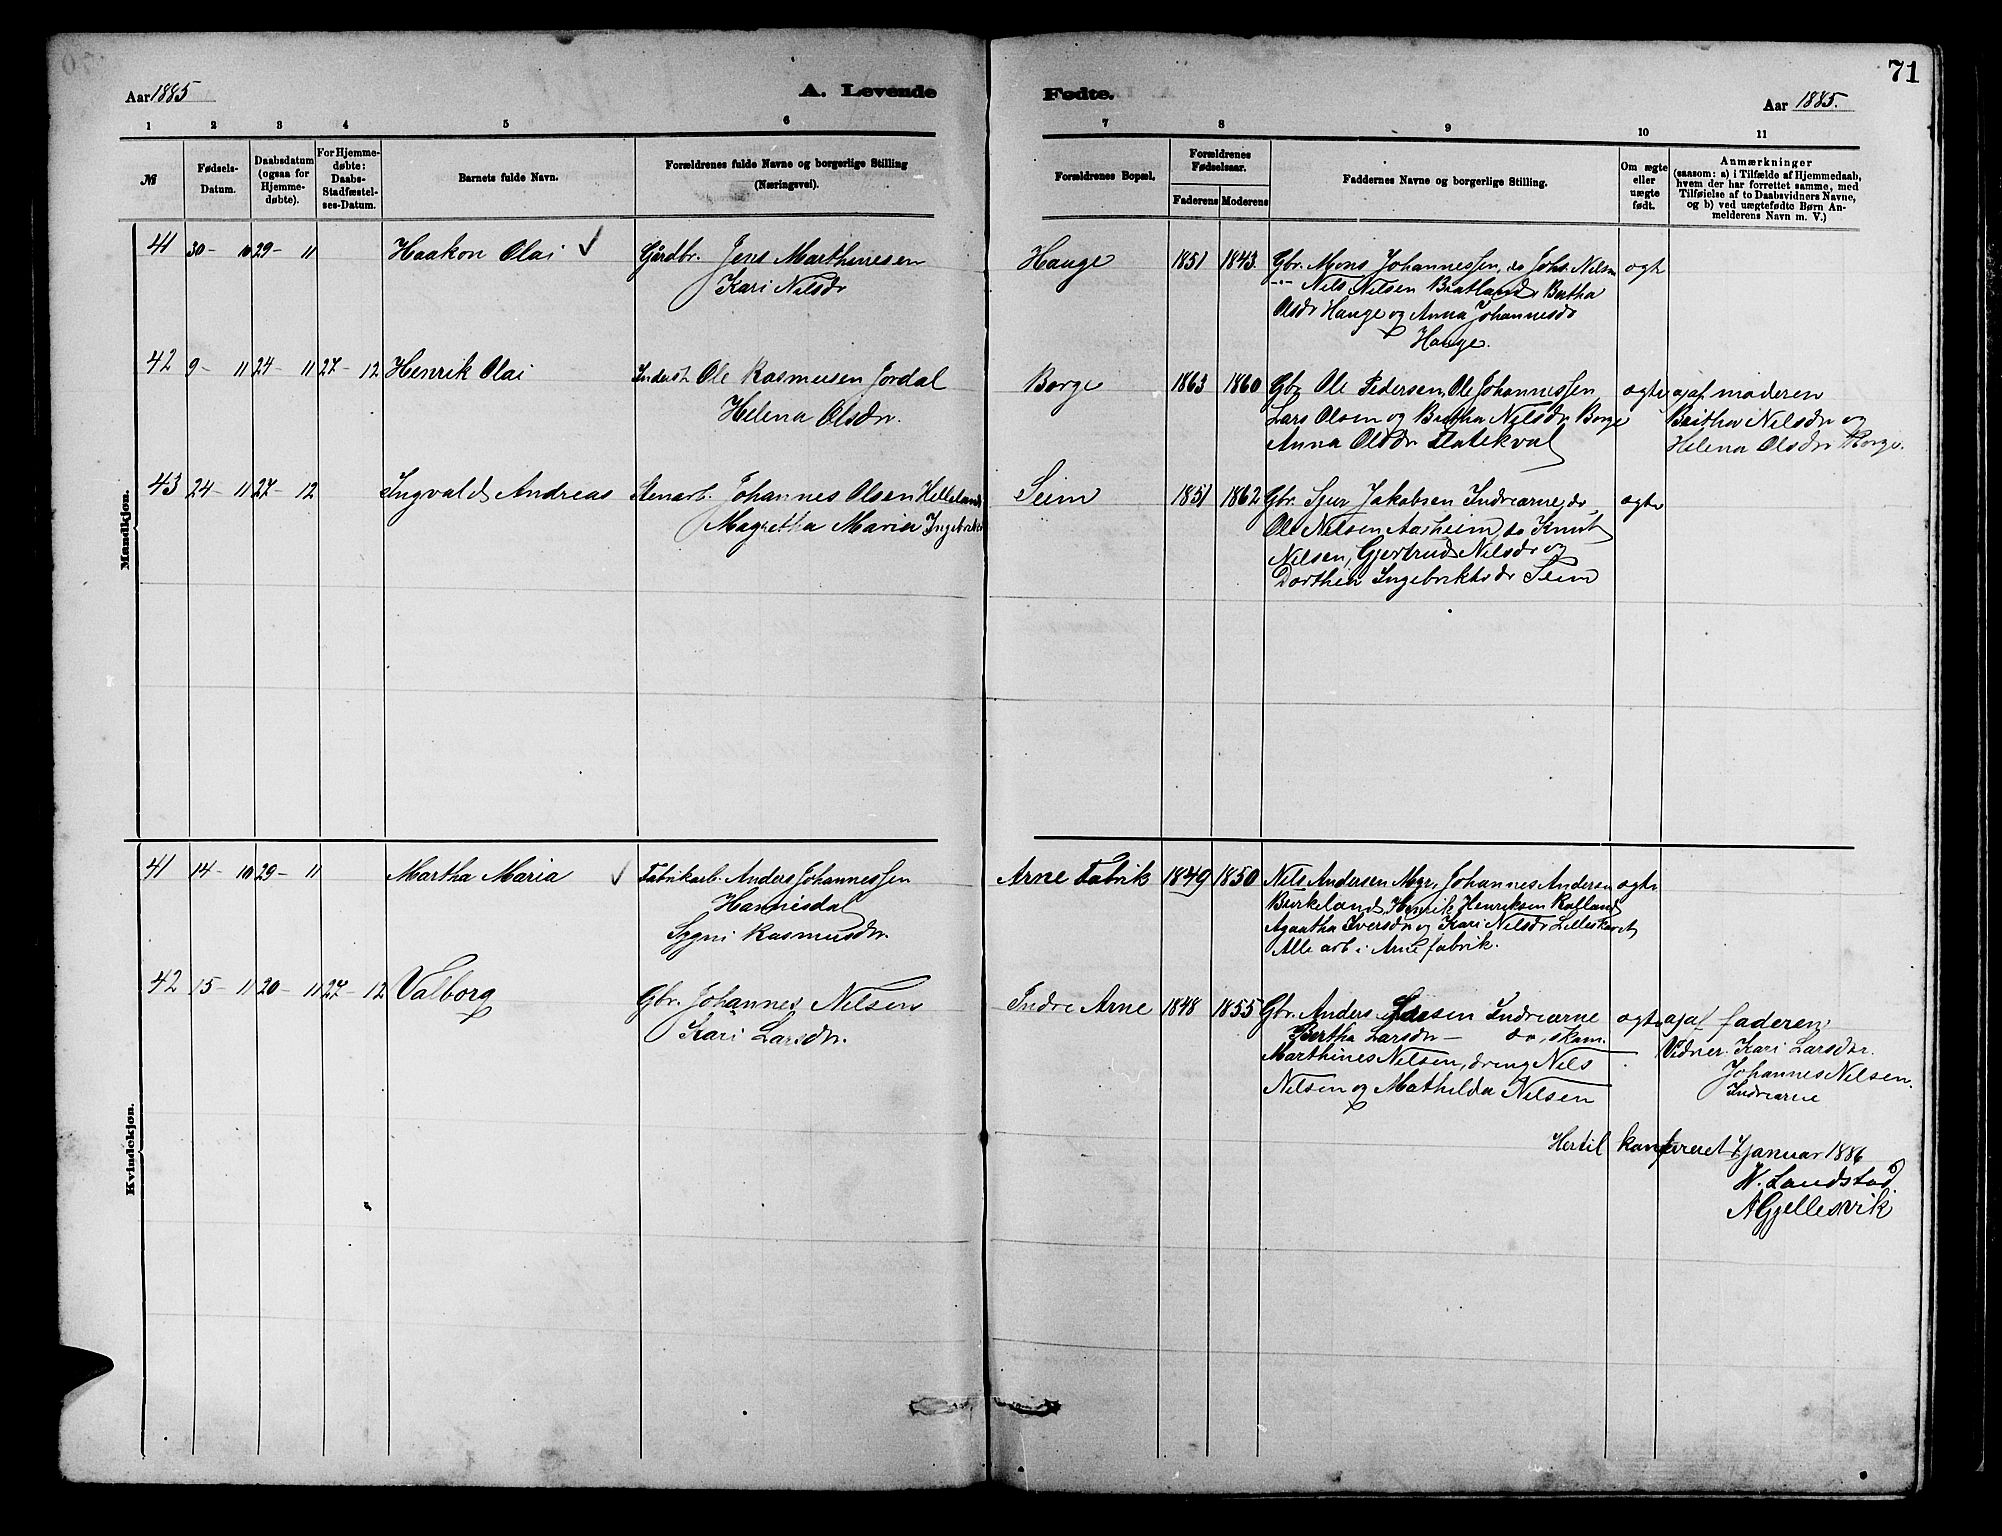 71
Aar 1885
A. Levende
Fødte.
Aar 1885.
1 2 3 4 5 6 7 8 9 10 11
№
Fødsels-
Datum.
Daabsdatum
(ogsaa for
Hjemme-
døbte).
For Hjemme-
døbte:
Daabs-
Stadfæstel-
ses-Datum.
Barnets fulde Navn.
Forældrenes fulde Navne og borgerlige Stilling
(Næringsvei).
Forældrenes Bopæl.
Forældrenes
Fødselsaar.
Faderens Moderens
Faddernes Navne og borgerlige Stilling.
Om ægte
eller
uægte
født.
Anmærkninger
(saasom: a) i Tilfælde af Hjemmedaab,
hvem der har forrettet samme, med
Tilføielse af to Daabsvidners Navne,
og b) ved uægtefødte Børn An-
melderens Navn m. V.)
Mandkjøn.
41 30- 10 29- 11 Haakon Olai
Gårdbr. Jens Marthinesen
Kari Nilsdr
Hauge 1851 1843.
Gbr. Mons Johannessen, do Johs. Nilsen
Nils Nilsen Bratland, Bertha
Olsdr Hauge og Anna Johannesdr
Hauge.
ægte
42 9- 11 24- 11 27- 12 Henrik Olai
Inderst Ole Rasmusen Jordal
Helena Olsdr.
Borge 1863 1860
Gbr Ole Pedersen, Ole Johannessen,
Lars Olsen og Britha Nilsdr Borge
Anna Olsdr Flatekval
ægte
af moderen
Britha Nilsdr og
Helena Olsdr Borge.
43 24- 11 27- 12 Ingvald Andreas
Stenarb. Johannes Olsen Helleland
Magretha Maria
Seim 1851 1862
Gbr. Sjur Jakobsen Indrearne, do,
Ole Nilsen Aarheim, do Knut
Nilsen, Gjertrud Nilsdr og
Dorthea Ingebriktsdr Seim
ægte
Kvindekjøn.
41 14- 10 29- 11 Martha Maria
Fabrikarb. Anders Johannessen
Hannisdal
Sygni Rasmusdr.
Arne Fabrik 1849 1850
Nils Andersen Myr, Johannes Andersen
Birkeland, Henrik Henriksen Kalland
Agaatha Iversdr og Kari Nilsdr Lilleskaret
Alle arb i Arne fabrik.
ægte
42 15- 11 20- 11 27- 12 Valborg
Gbr. Johannes Nilsen
Kari Larsdr.
Indre Arne 1848 1855
Gbr. Anders Larsen Indrearne
Bertha Larsdr - do, skom.
Marthines Nilsen, dreng Nils
Nilsen og Mathilda Nilsen
ægte
af faderen
Vidner. Kari Larsdr.
Johannes Nilsen.
Indrearne
Hertil konfereret januar 1886
W. Landstad
A Gjellesvik